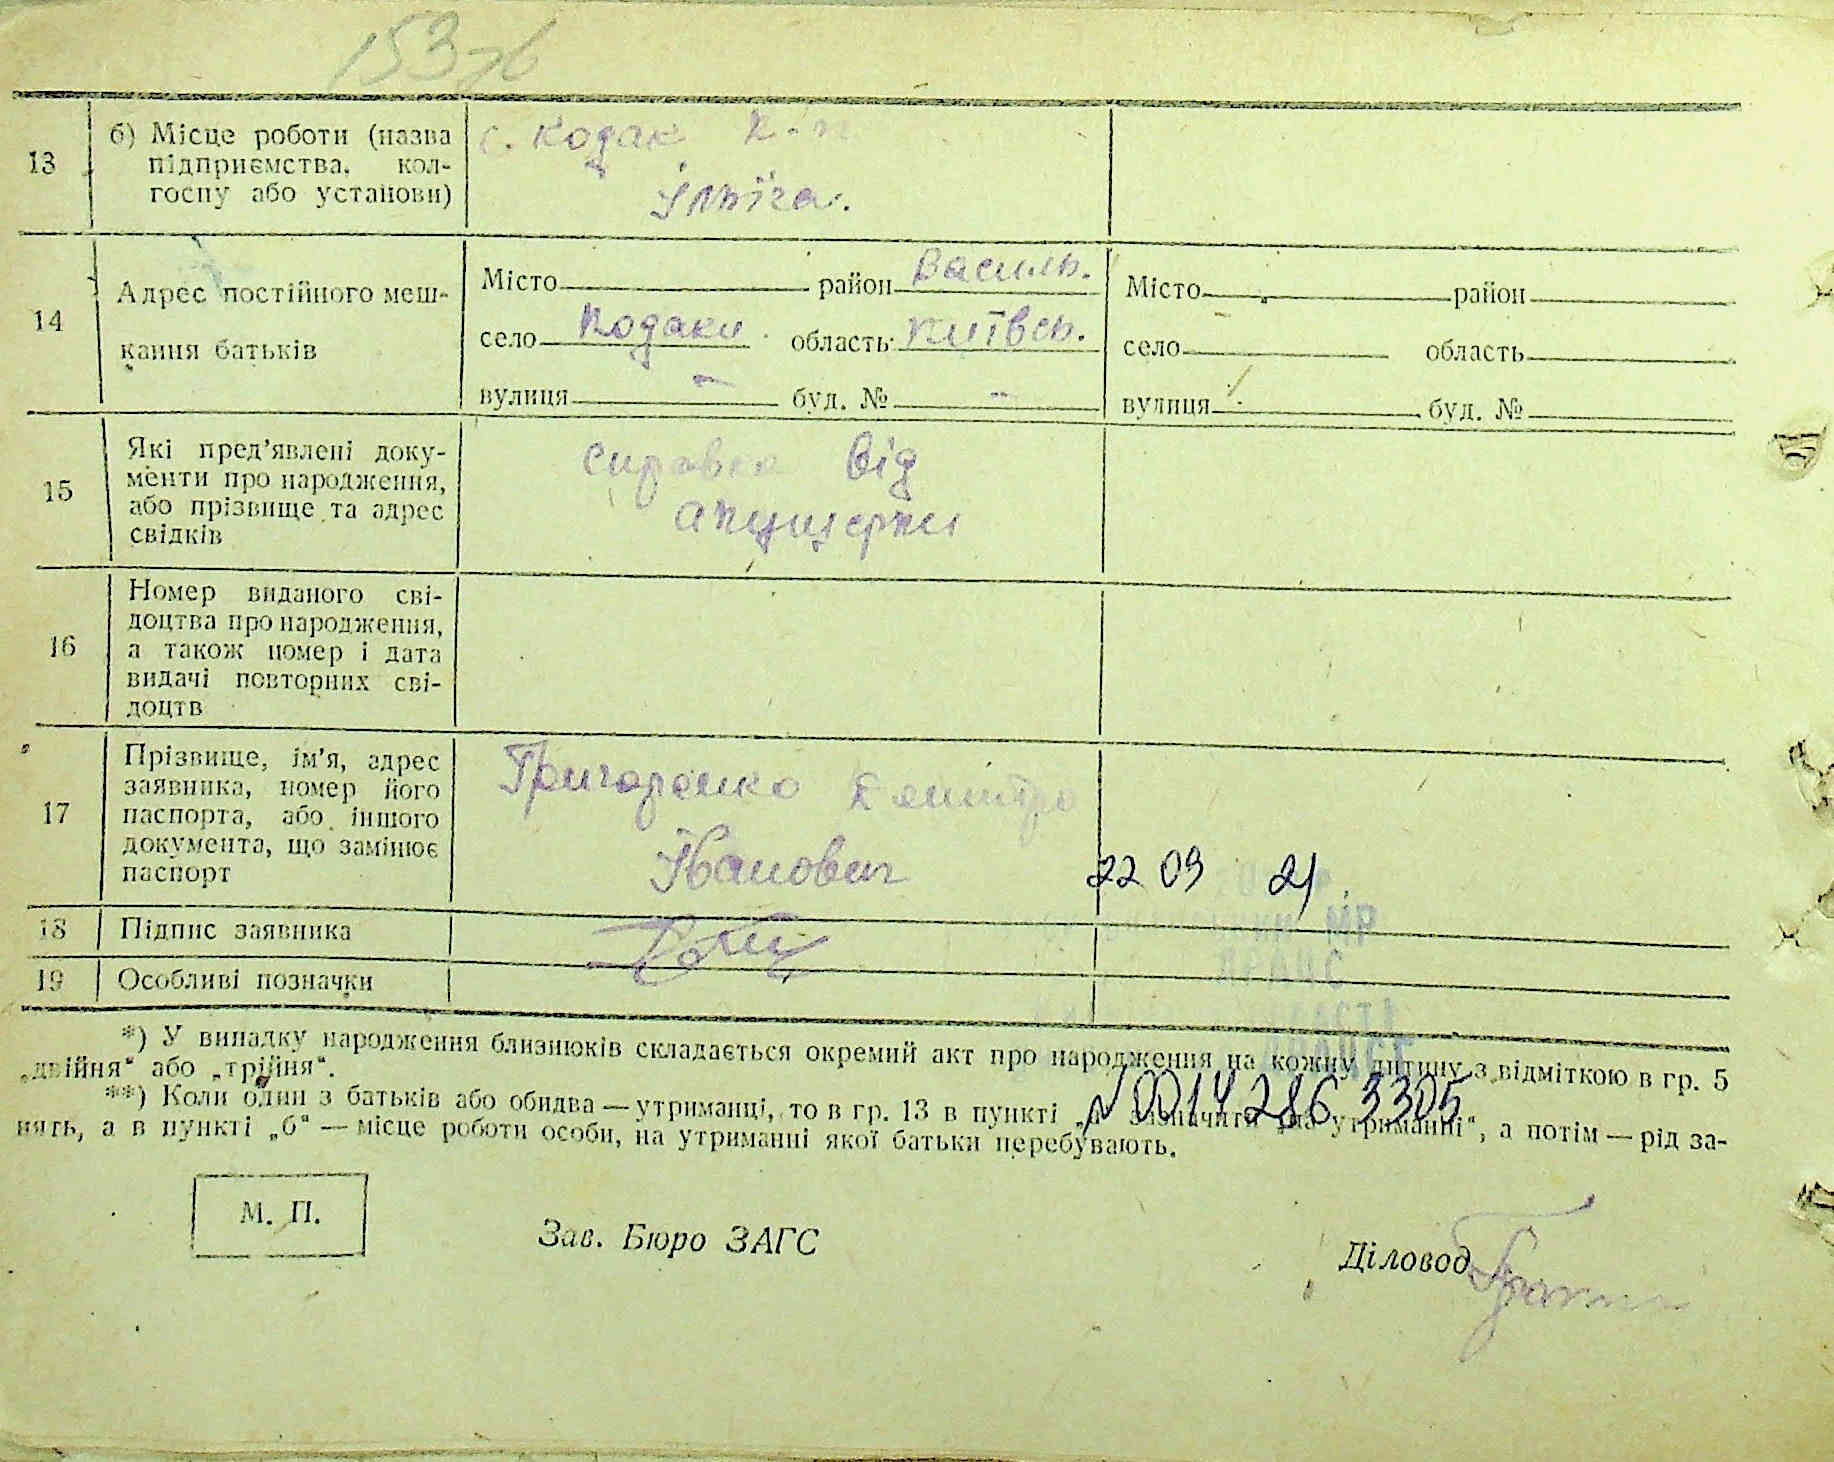 153зв
13 б) Місце роботи (назва
підприємства, кол-
госпу або установи)
с. Кодак к-п
Ілліча.
14 Адрес постійного меш-
кання батьків
Місто район Василь.
село Кодаки область Київсь.
вулиця - буд. № -
Місто район
село область
вулиця буд. №
15 Які пред'явлені доку-
менти про народження,
або прізвище та адрес
свідків
справка від
акушерки
16 Номер виданого сві-
доцтва про народження,
а також номер і дата
видачі повторних сві-
доцтв
17 Прізвище, ім'я, адрес
заявника, номер його
паспорта, або іншого
документа, що замінює
паспорт
Григоренко Дмитро
Іванович
22 09 21
18 Підпис заявника
19 Особливі позначки
*) У випадку народження близнюків складається окремий акт про народження на кожну дитину з відміткою в гр. 5
„двійня“ або „трійня“.
**) Коли один з батьків або обидва — утриманці, то в гр. 13 в пункті „а“ зазначити „на утриманні“, а потім — рід за-
нять, а в пункті „б“ — місце роботи особи, на утриманні якої батьки перебувають.
N 0014 286 3305
М. П.
Зав. Бюро ЗАГС
Діловод